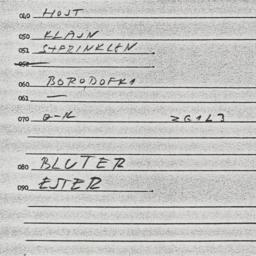 040 HOST
050 KLAJN
051 SHPRINKLEN
052
060 BORODOFKA
061 —
070 0-K 26163
080 BLUTER
090 ESTER